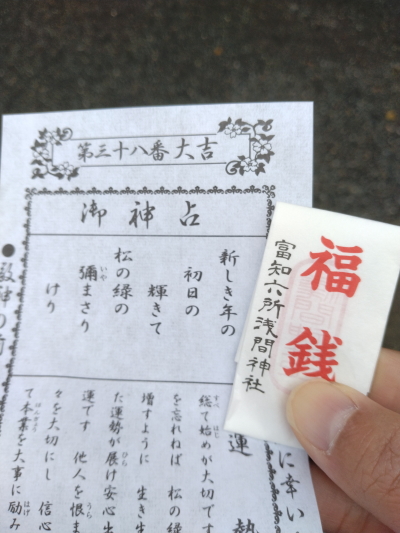 第三十八番 大吉
御神占
新しき年の
初日の
輝きて
松の緑の
彌まさり
けり
運勢
総て始めが大切です
を忘れねば 松の緑
増すように 生き生
た運勢が展け安心出
運です 他人を恨ま
々を大切にし 信心
て本業を大事に励み
に幸い
福銭
富知六所浅間神社